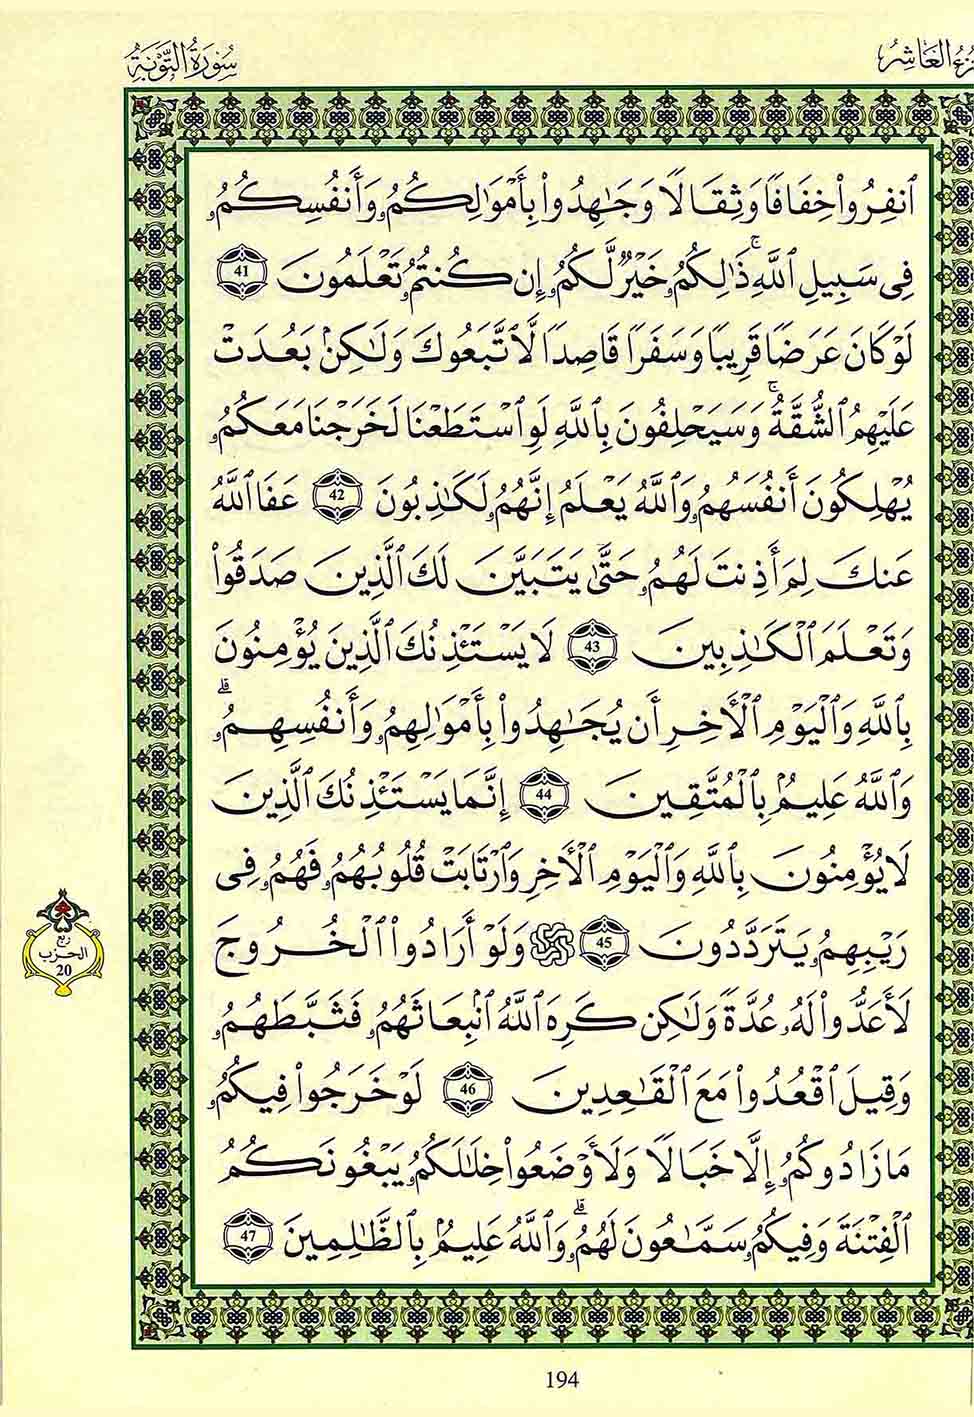 سُورَةُ التَّوْبَةِ
زءُ الْعَاشِرُ
ٱنفِرُواْ خِفَافٗا وَثِقَالٗا وَجَٰهِدُواْ بِأَمْوَٰلِكُمُۥ وَأَنفُسِكُمُۥ
فِى سَبِيلِ ٱللَّهِۚ ذَٰلِكُمُۥ خَيْرٞ لَّكُمُۥ إِن كُنتُمُۥ تَعْلَمُونَ 41
لَوْ كَانَ عَرَضٗا قَرِيبٗا وَسَفَرٗا قَاصِدٗا لَّٱتَّبَعُوكَ وَلَٰكِنۢ بَعُدَتْ
عَلَيْهِمُ ٱلشُّقَّةُۚ وَسَيَحْلِفُونَ بِٱللَّهِ لَوِ ٱسْتَطَعْنَا لَخَرَجْنَا مَعَكُمُۥ
يُهْلِكُونَ أَنفُسَهُمُۥ وَٱللَّهُ يَعْلَمُ إِنَّهُمُۥ لَكَٰذِبُونَ 42 عَفَا ٱللَّهُ
عَنكَ لِمَ أَذِنتَ لَهُمُۥ حَتَّىٰ يَتَبَيَّنَ لَكَ ٱلَّذِينَ صَدَقُواْ
وَتَعْلَمَ ٱلْكَٰذِبِينَ 43 لَا يَسْتَـْٔذِنُكَ ٱلَّذِينَ يُؤْمِنُونَ
بِٱللَّهِ وَٱلْيَوْمِ ٱلْأٓخِرِ أَن يُجَٰهِدُواْ بِأَمْوَٰلِهِمُۥ وَأَنفُسِهِمُۥۗ
وَٱللَّهُ عَلِيمُۢ بِٱلْمُتَّقِينَ 44 إِنَّمَا يَسْتَـْٔذِنُكَ ٱلَّذِينَ
لَا يُؤْمِنُونَ بِٱللَّهِ وَٱلْيَوْمِ ٱلْأٓخِرِ وَٱرْتَابَتْ قُلُوبُهُمُۥ فَهُمُۥ فِى
رَيْبِهِمُۥ يَتَرَدَّدُونَ 45 وَلَوْ أَرَادُواْ ٱلْخُرُوجَ
لَأَعَدُّواْ لَهُۥ عُدَّةٗ وَلَٰكِن كَرِهَ ٱللَّهُ ٱنۢبِعَاثَهُمُۥ فَثَبَّطَهُمُۥ
وَقِيلَ ٱقْعُدُواْ مَعَ ٱلْقَٰعِدِينَ 46 لَوْ خَرَجُواْ فِيكُمُۥ
مَا زَادُوكُمُۥ إِلَّا خَبَالٗا وَلَأَوْضَعُواْ خِلَٰلَكُمُۥ يَبْغُونَكُمُ
ٱلْفِتْنَةَ وَفِيكُمُۥ سَمَّٰعُونَ لَهُمُۥۗ وَٱللَّهُ عَلِيمُۢ بِٱلظَّٰلِمِينَ 47
ربع
الحزب
20
194